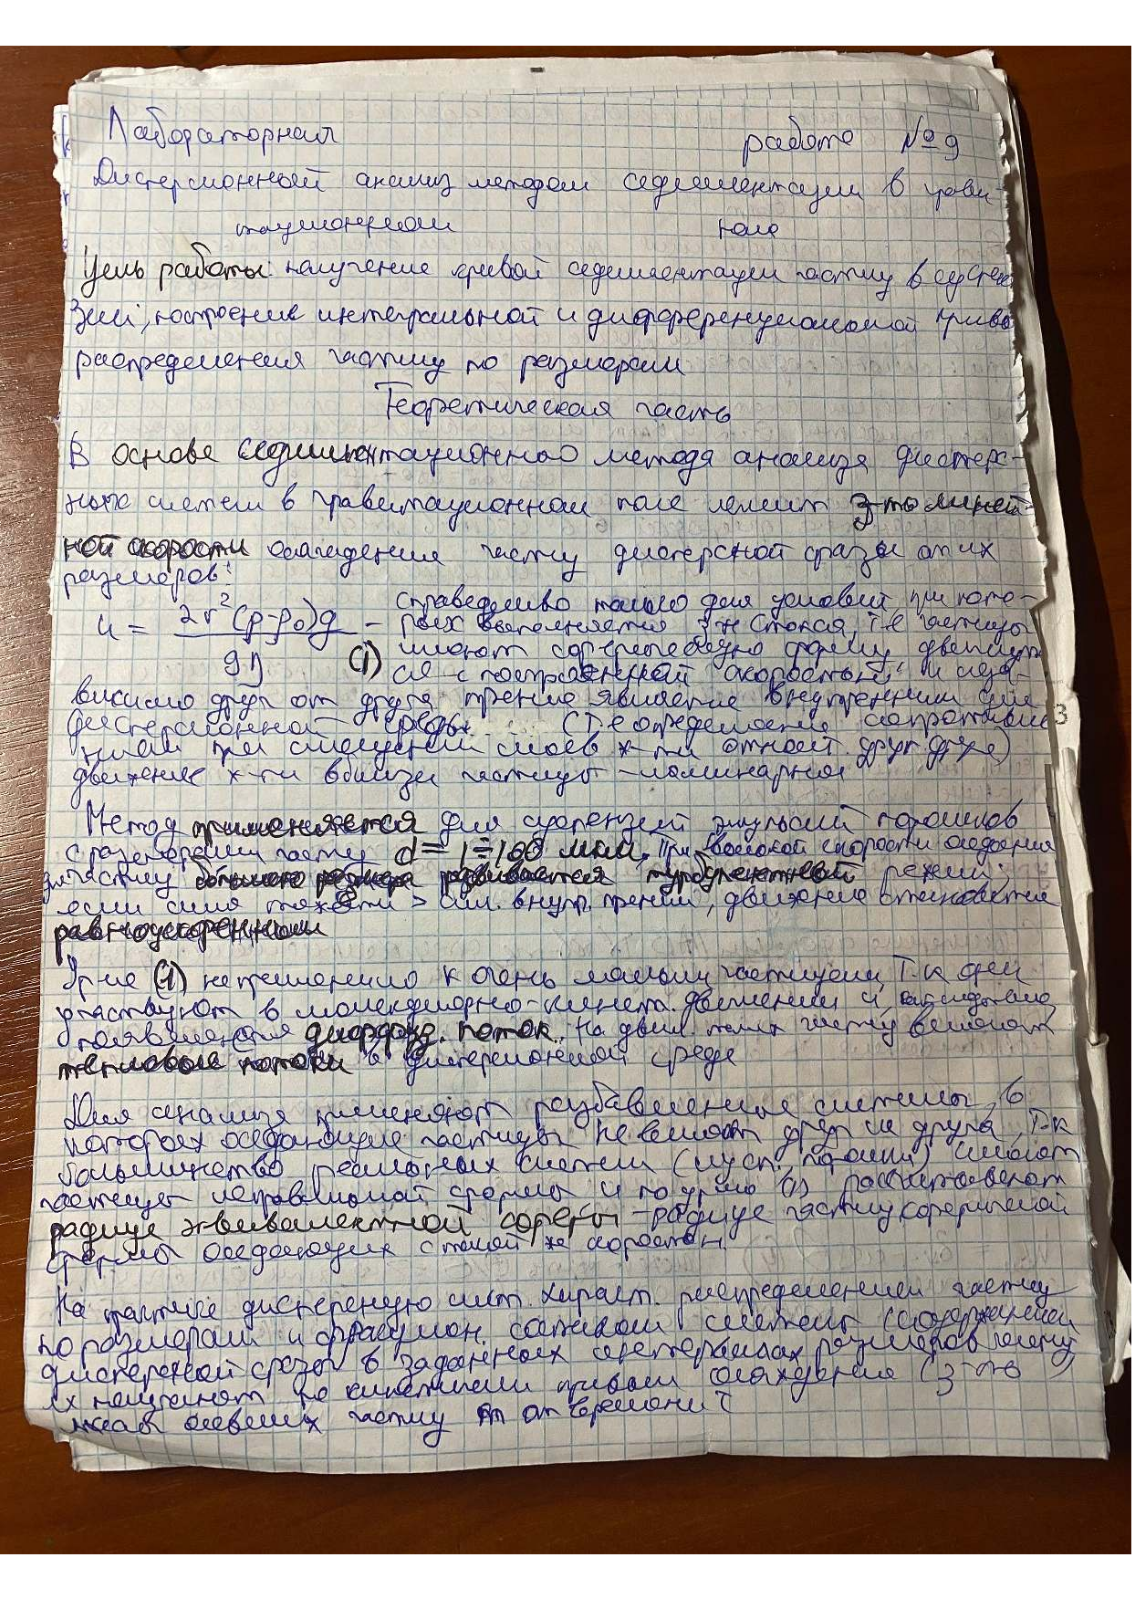 Лабораторная работа № 9
Дисперсионный анализ методом седиментации в грави-
тационном поле
Цель работы: получение кривой седиментации частиц в суспен
зии, построение интегральной и дифференциальной криво
распределения частиц по размерам
Теоретическая часть
В основе седиментационного метода анализа дисперс-
ных систем в гравитационном поле лежит з-ть линей-
ной скорости осаждения частиц дисперсной фазы от их
размеров:
u = 2r²(ρ-ρ₀)g / 9η (1)
– справедливо только для условий при кото-
рых выполняется з-н Стокса, т.е частицы
имеют сферическую форму, движут
ся с постоянной скоростью, и неза-
висимо друг от друга, трение является внутренним для
дисперсионной среды (т.е определяется сопротивле
нием при слоев ж-ти относит. друг друга)
движение ж-ти вблизи частицы – ламинарное
Метод применяется для суспензий эмульсий порошков
с размерами частиц d = 1÷100 мкм. При высокой скорости оседания
частиц большого размера развивается турбулентный режим;
если сила тяжести > сил. внутр. трения, движение становится
равноускоренным
Ур-ие (1) неприменимо к очень малым частицам, т.к они
участвуют в молекулярно-кинет. движении и
появляется диффуз. поток. На движ. таких частиц влияют
тепловые потоки в дисперсионной среде
Для анализа применяют разбавленные системы, в
которых оседающие частицы не влияют друг на друга, т.к
большинство реальных систем (сусп., порошки) имеют
частицы неправильной формы и по ур-ию (1) рассчитывают
радиус эквивалентной сферы – радиус частиц сферической
формы оседающих с такой же скоростью.
На практике дисперсную сист. характ. распределением частиц
по размерам и фракцион. составом системы (содержанием
дисперсной фазы в заданных интервалах размеров
их получают по кинетич. кривым осаждения (з-ть
массы осевших частиц m от времени τ